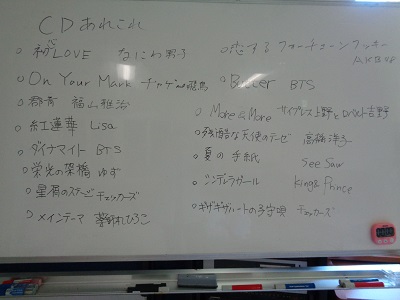 CDあれこれ
初心LOVE なにわ男子
On Your Mark チャゲ&飛鳥
群青 福山雅治
紅蓮華 Lisa
ダイナマイト BTS
栄光の架橋 ゆず
星屑のステージ チェッカーズ
メインテーマ 薬師丸ひろこ
恋するフォーチュンクッキー
AKB48
Butter BTS
More & More
残酷な天使のテーゼ 高橋洋子
夏の手紙 See Saw
シンデレラガール King & Prince
ギザギザハートの子守唄 チェッカーズ